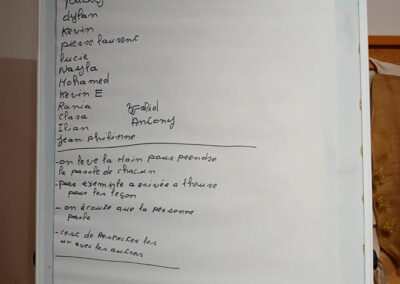 dylan
Kevin
pierre laurent
lucie
Nayla
Mohamed
Kevin E
Rania
Clara
Ilian
Jean philinne
Zaid
Antony
- on leve la main pour prendre
la parole de chacun
- par exemple arrivée a l'heure
pour les leçon
- on écoute que la personne
parle
- c'est de respecter les
un avec les autres